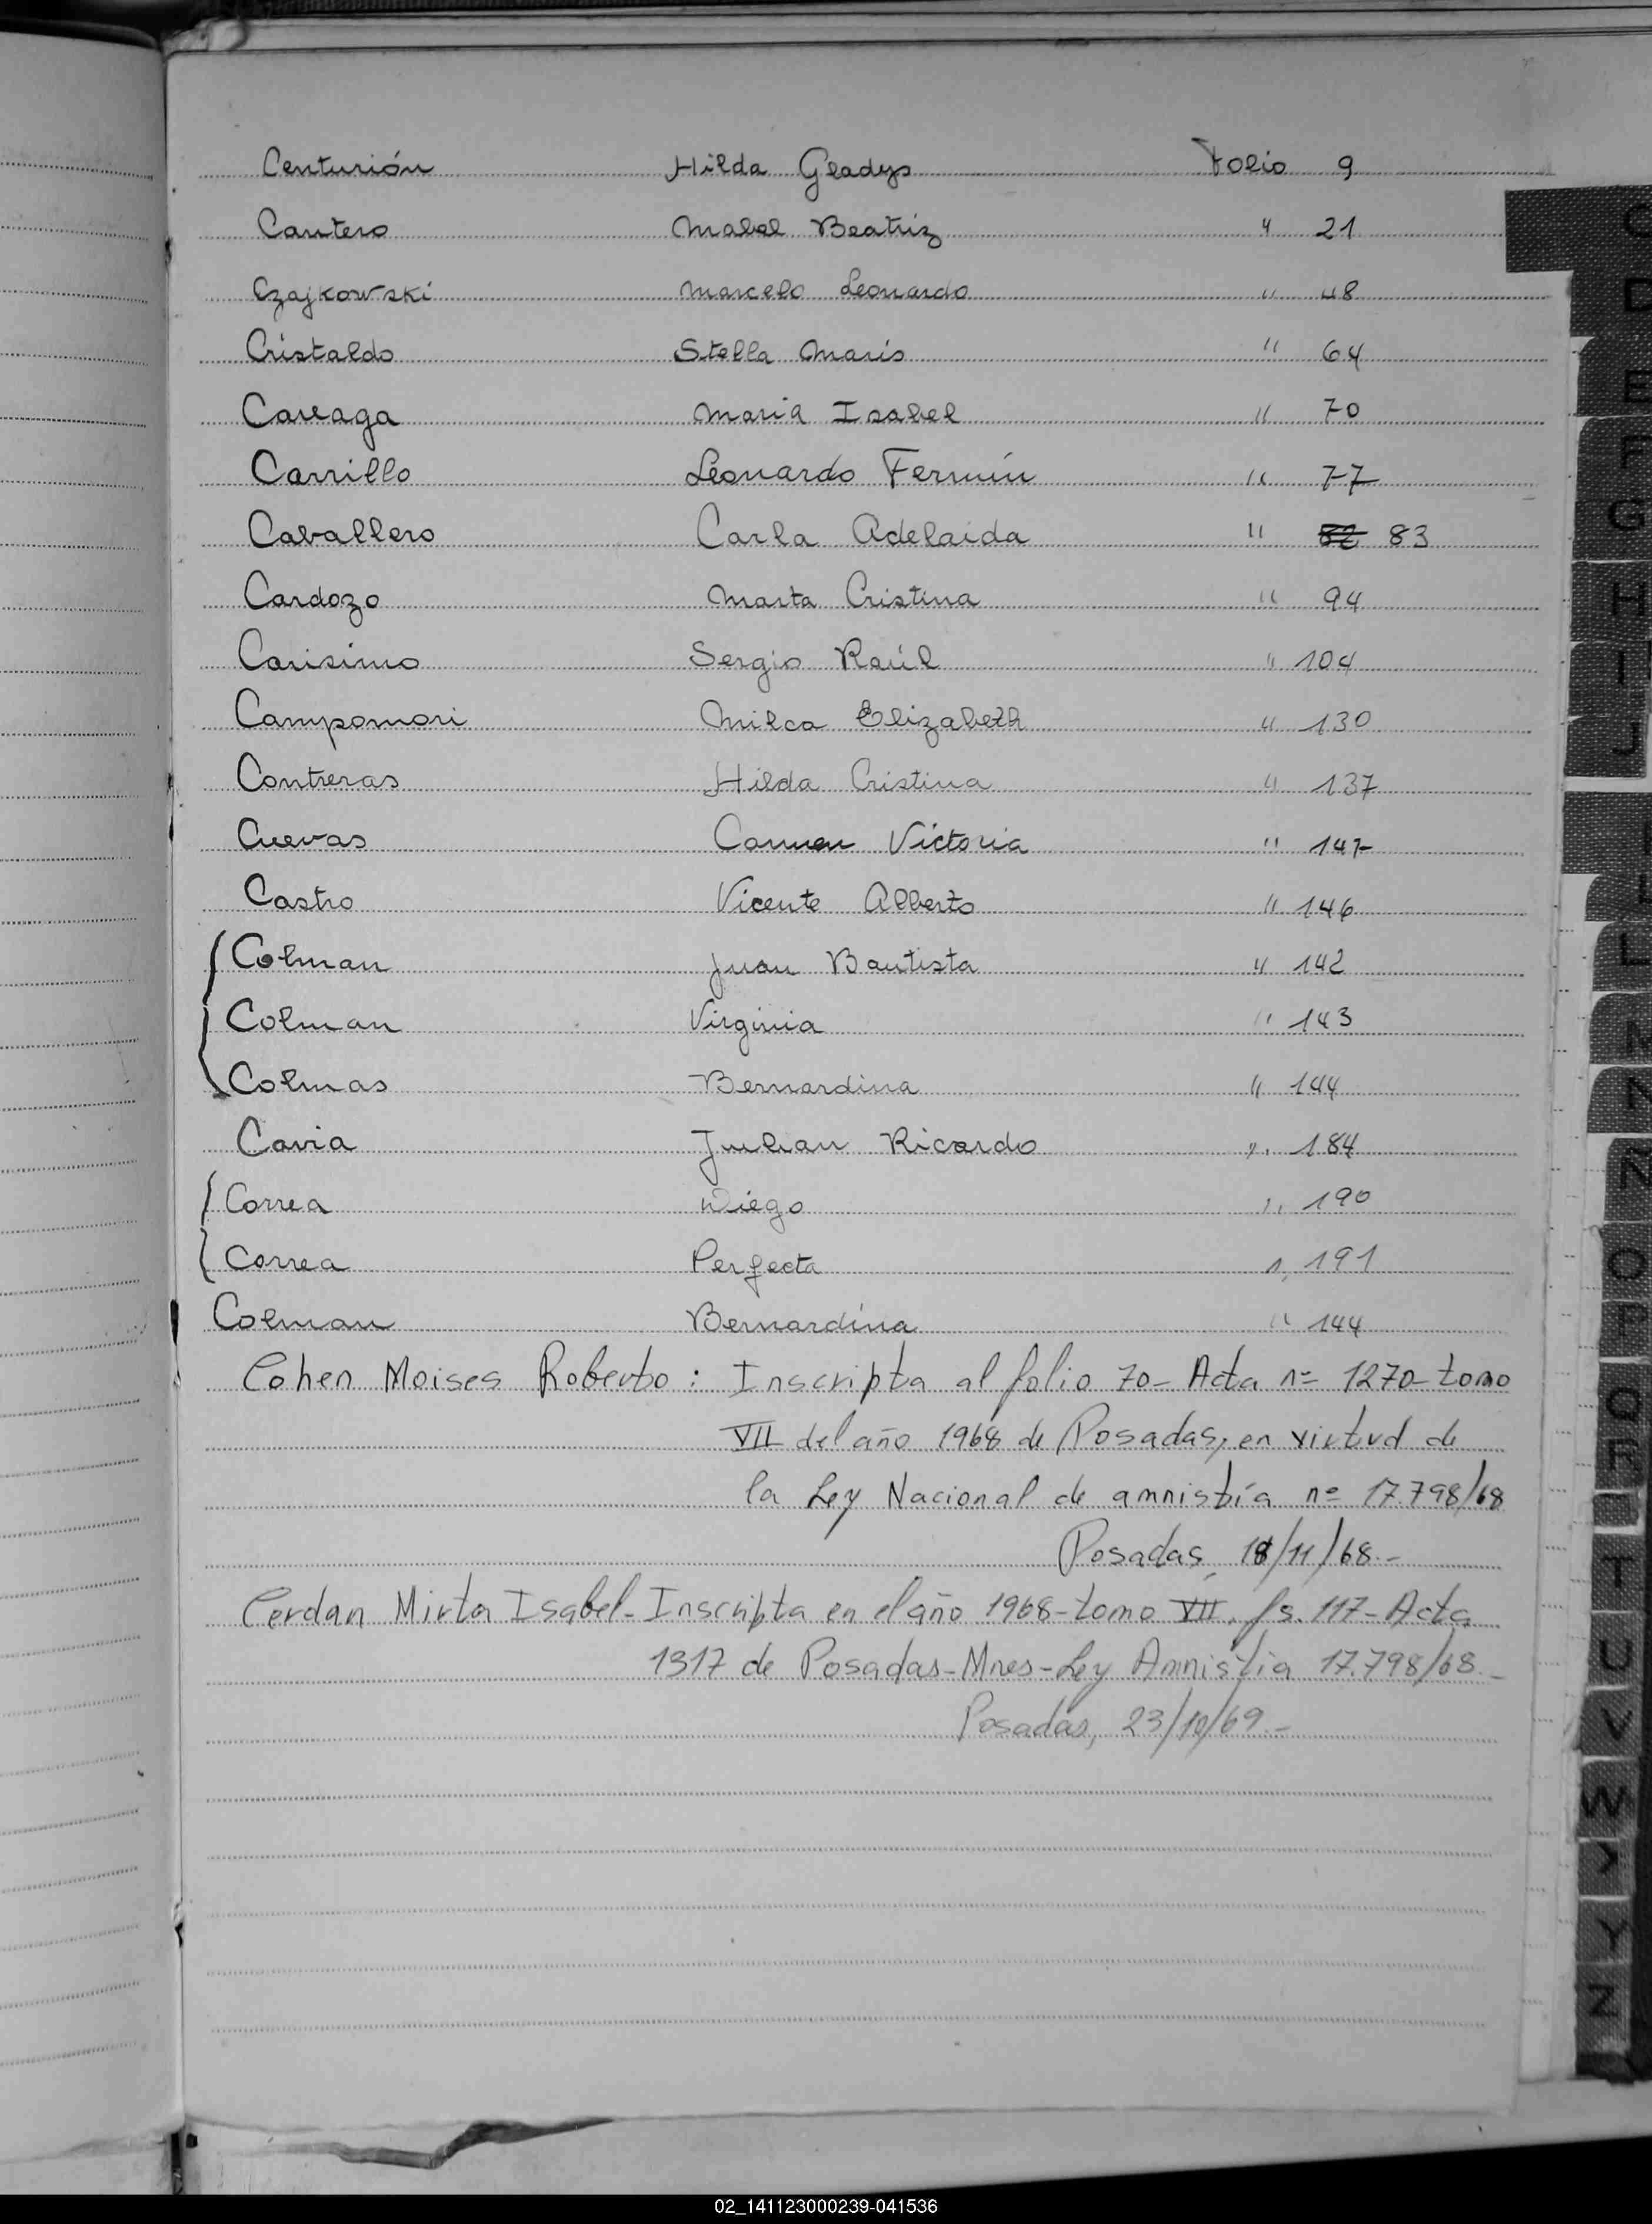 Centurión Hilda Gladys Folio 9
Cantero Mabel Beatriz " 21
Czajkowski Marcelo Leonardo " 48
Cristaldo Stella Maris " 64
Careaga Maria Isabel " 70
Carrillo Leonardo Fermín " 77
Caballero Carla Adelaida " 82 83
Cardozo Marta Cristina " 94
Carisimo Sergio Raúl " 104
Campomori Milca Elizabeth " 130
Contreras Hilda Cristina " 137
Cuevas Carmen Victoria " 147
Castro Vicente Alberto " 146
Colman Juan Bautista " 142
Colman Virginia " 143
Colmas Bernardina " 144
Cavia Julian Ricardo " 184
Correa Diego " 190
Correa Perfecta " 191
Colman Bernardina " 144
Cohen Moises Roberto: Inscripta al folio 70- Acta nº 1270- tomo
VII del año 1968 de Posadas, en virtud de
la Ley Nacional de amnistía nº 17.798/68
Posadas, 18/11/68.-
Cerdan Mirta Isabel- Inscripta en el año 1968- tomo VII. fs. 117- Acta
1317 de Posadas- Mnes- Ley Amnistia 17.798/68.-
Posadas, 23/10/69.-
C
D
E
F
G
H
I
J
L
N
N
O
P
Q
R
T
U
V
W
Y
Z
02_141123000239-041536